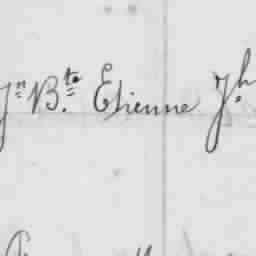 Jn Bte Etienne Jh